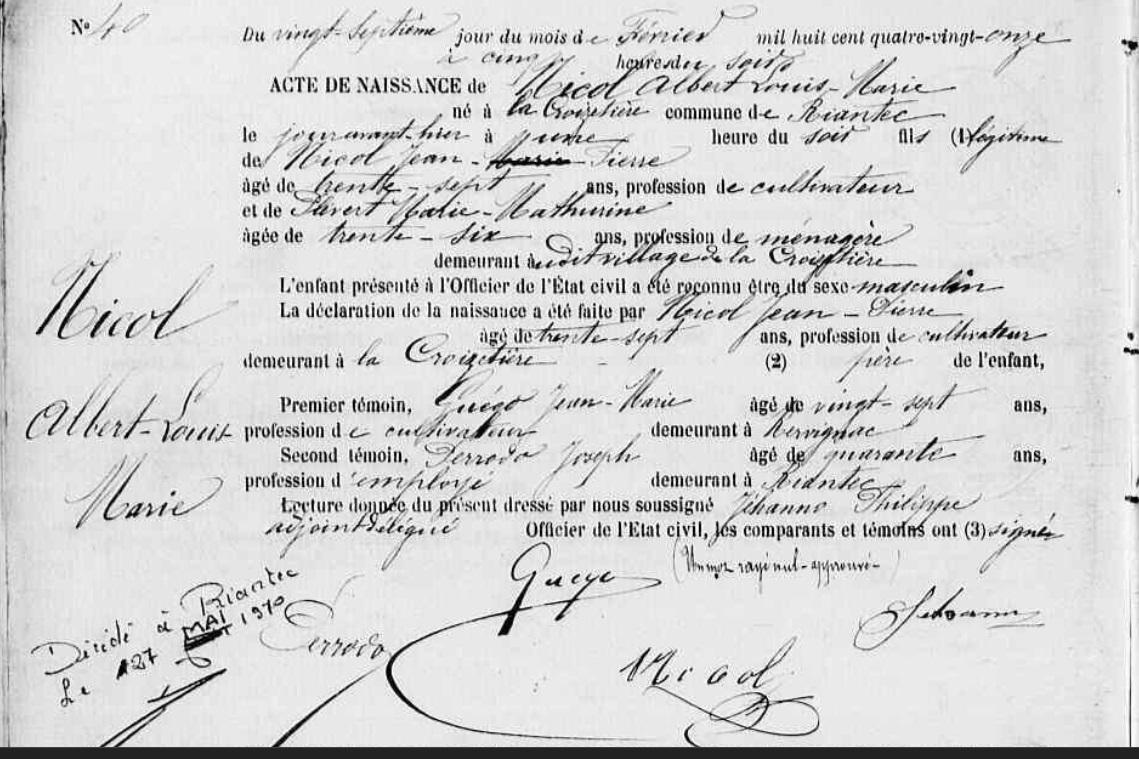 N° 40
Du vingt-Septième jour du mois de Février mil huit cent quatre-vingt-onze
à cinq heures du soir
ACTE DE NAISSANCE de Nicol Albert Louis-Marie
né à la Croizetière commune de Riantec
le jour avant-hier à heure du soir fils (1) légitime
de Nicol Jean-Marie Pierre
âgé de trente-sept ans, profession de cultivateur
et de Marie-Mathurine
âgée de trente-six ans, profession de ménagère
demeurant à udit village de la Croizetière
L'enfant présenté à l'Officier de l'État civil a été reconnu être du sexe masculin
La déclaration de la naissance a été faite par Nicol Jean-Pierre
âgé de trente-sept ans, profession de cultivateur
Nicol
demeurant à la Croizetière (2) père de l'enfant,
Premier témoin, Guégo Jean-Marie âgé de vingt-sept ans,
Albert-Louis
profession de cultivateur demeurant à Kervignac
Second témoin, Perrodo Joseph âgé de quarante ans,
profession d'employé demeurant à Riantec
Marie
Lecture donnée du présent dressé par nous soussigné Jéhanno Philippe
adjoint délégué Officier de l'Etat civil, les comparants et témoins ont (3) signé
(Un mot rayé nul-approuvé-)
Guego
Décédé à Riantec
Le 27 MAI 1970
Perrodo
Jehanno
Nicol